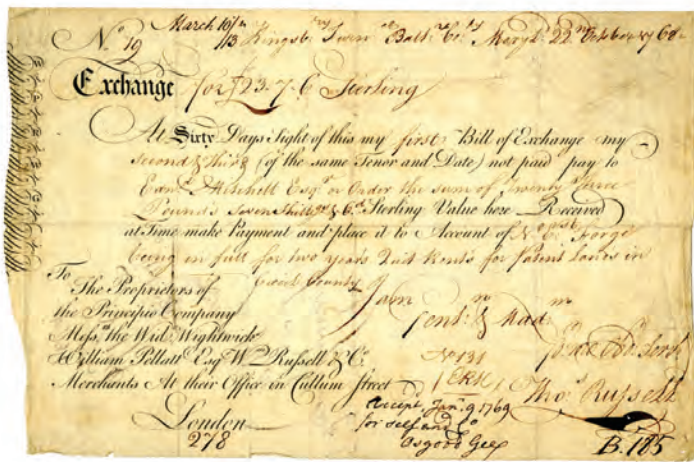 March 16/13
No 19 Kingsby Furn ce Baltre Cty Maryld 22nd October 1768
Exchange for £23.7.6 Sterling
At Sixty Days Sight of this my first Bill of Exchange my
second & third (of the same Tenor and Date) not paid pay to
Mitchell Esqr or Order the sum of Twenty three
Pounds Seven Shillgs & 6d Sterling Value here Received
at Time make Payment and place it to Account of Forge
being in full for two years Quit Rents for Patent Lands in
Cecil County of
To
The Proprietors of
the Principio Company
Messrs the Wid. Wightwick
William Pellatt Esqr W Russell & Co
Merchants At their Office in Cullum Street
London
278
Gentn & Madm
No 131
Thos Russell
Accept Jany 9 1769
for self and Co
Osgood Gee
B.185